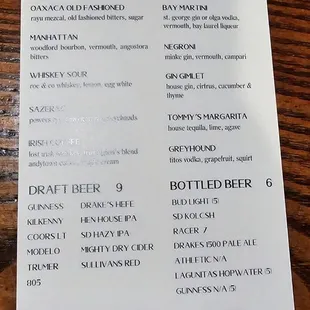 OAXACA OLD FASHIONED
rayu mezcal, old fashioned bitters, sugar
MANHATTAN
woodford bourbon, vermouth, angostora
bitters
WHISKEY SOUR
roe & co whiskey, lemon, egg white
SAZERAC
IRISH
blend
cream
BAY MARTINI
st. george gin or olga vodka,
vermouth, bay laurel liqueur
NEGRONI
minke gin, vermouth, campari
GIN GIMLET
house gin, cirtrus, cucumber &
thyme
TOMMY'S MARGARITA
house tequila, lime, agave
GREYHOUND
titos vodka, grapefruit, squirt
DRAFT BEER 9
GUINNESS
KILKENNY
COORS LT
MODELO
TRUMER
805
DRAKE'S HEFE
HEN HOUSE IPA
SD HAZY IPA
MIGHTY DRY CIDER
SULLIVANS RED
BOTTLED BEER 6
BUD LIGHT (5)
SD KOLCSH
RACER 7
DRAKES 1500 PALE ALE
ATHLETIC N/A
LAGUNITAS HOPWATER (5)
GUINNESS N/A (5)